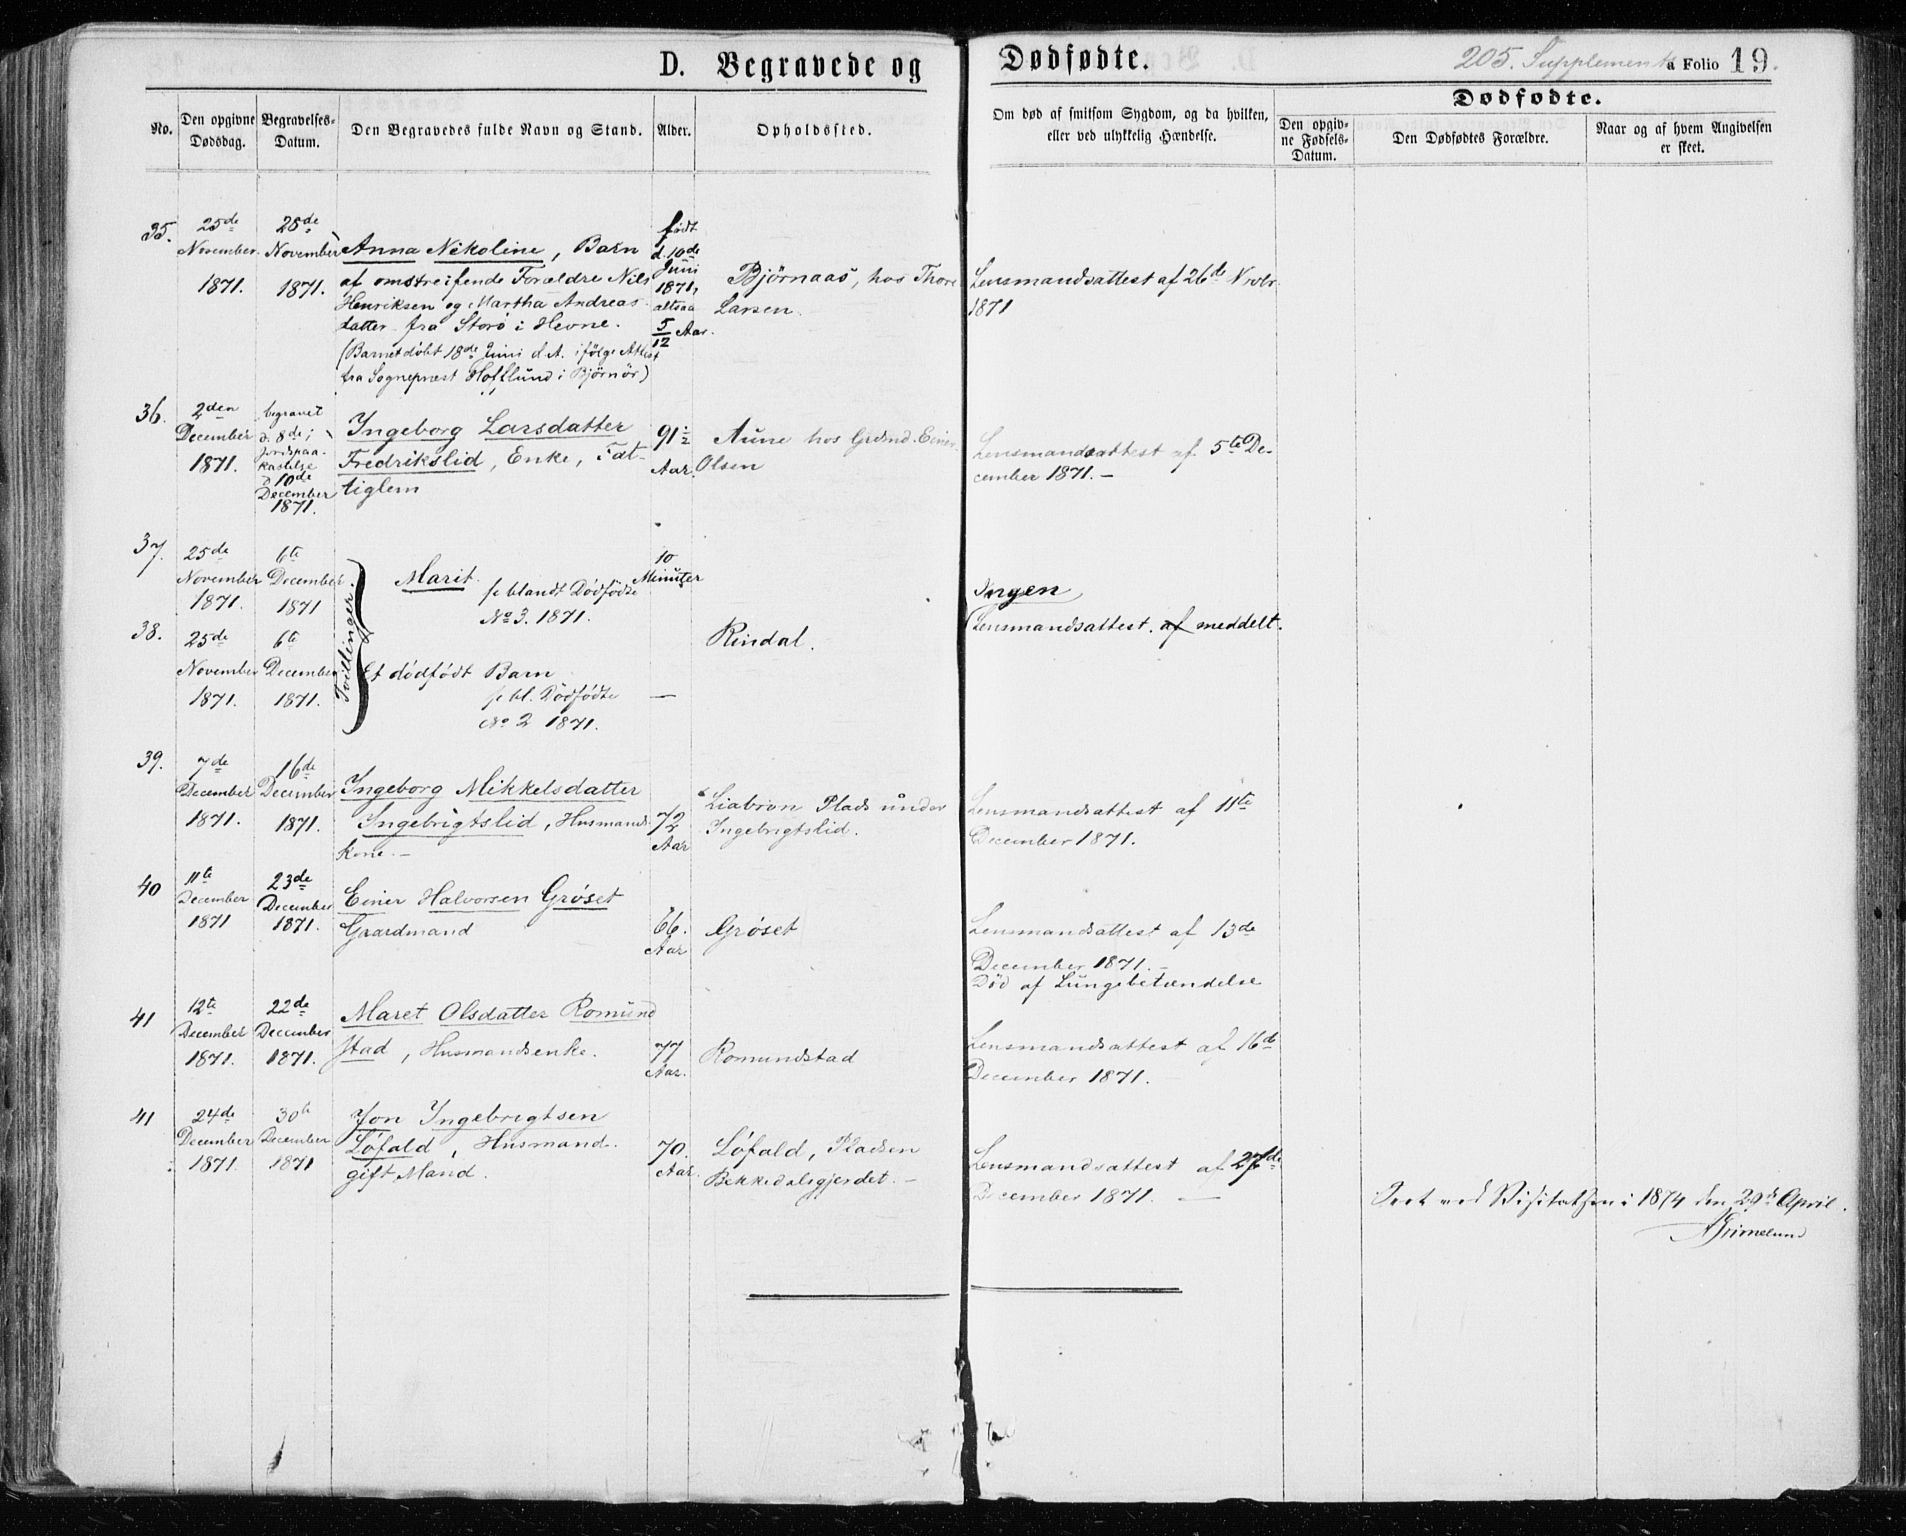 D. Begravede og Dødfødte.
205. Supplement a Folio 19.
No.
Den opgivne Dødsdag.
Begravelses-Datum.
Den Begravedes fulde Navn og Stand.
Alder.
Opholdssted.
Om død af smitsom Sygdom, og da hvilken,
eller ved ulykkelig Hændelse.
Dødfødte.
Den opgivne Fødsels-Datum.
Den Dødfødtes Forældre.
Naar og af hvem Angivelsen
er skeet.
35.
25de
November
1871.
28de
November
1871.
Anna Nikoline, Barn
af omstreifende Forældre Nils
Henriksen og Martha Andreas-
datter fra Storö i Hevne.
(Barnet döbt 18de Juni d. A. ifölge Attest
fra Sognepræst Hofflund i Bjørnör)
født
d. 10de
Juni
1871,
altsaa
5/12 Aar.
Bjørnaas, hos Thore
Larsen.
Lensmandsattest af 26de Novbr
1871
36.
2den
December
1871.
begravet
d. 8de;
Jordspaa-
kastelse
d 10de
December
1871.
Ingeborg Larsdatter
Fredrikslid, Enke, Fat-
tiglem
91½
Aar.
Aune hos Grdmd. Einer
Olsen
Lensmandsattest af 5te De-
cember 1871. —
37.
25de
November
1871.
6te
December
1871
Tvillinger.
Marit.
se blandt Dödfödte
No 3. 1871.
10
Minuter
Ingen
Lensmandsattest. af meddelt.
38.
25de
November
1871.
6te
December
1871.
Et dödfödt Barn
se bl. Dödfödte
No 2 1871.
—
Rindal.
39.
7de
December
1871.
16de
December
1871.
Ingeborg Mikkelsdatter
Ingebrigtslid, Husmands-
kone. —
72
Aar
Liabron Plads under
Ingebrigtslid.
Lensmandsattest af 11te
December 1871.
40
11te
December
1871
23de
December
1871.
Einer Halvorsen Grøset
Gaardmand
66.
Aar
Grøset
Lensmandsattest af 13de
December 1871. —
Död af Lungebetændelse
41
12te
December
1871.
22de
December
1871.
Maret Olsdatter Romund
stad, Husmandsenke.
77
Aar.
Romundstad
Lensmandsattest af 16de
December 1871. —
41
24de
December
1871.
30te
December
1871
Jon Ingebrigtsen
Löfald, Husmand.
gift Mand.
70.
Aar.
Löfald, Pladsen
Bekkedalsgjerdet. —
Lensmandsattest af 27de
December 1871. —
Seet ved Visitatsen i 1874 den 29de April.
A Grimelund